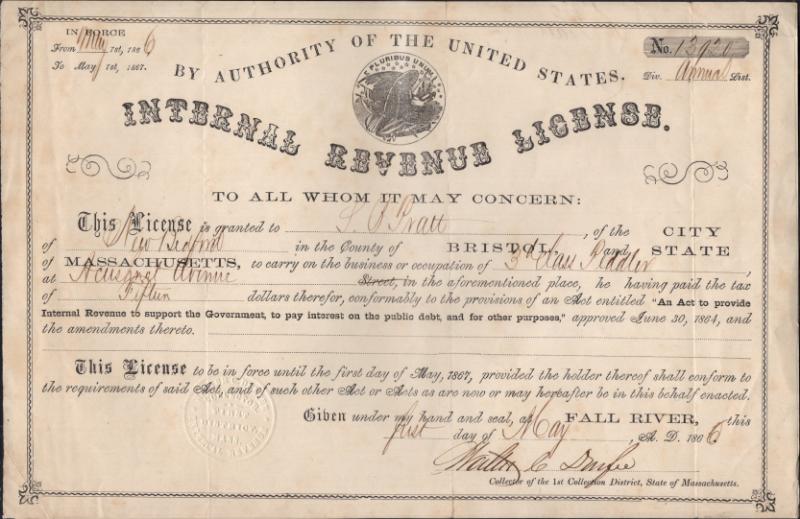 IN FORCE
From May 1st, 1866
To May 1st, 1867.
No. 12920
Div. Annual List.
BY AUTHORITY OF THE UNITED STATES.
E PLURIBUS UNUM
INTERNAL REVENUE LICENSE.
TO ALL WHOM IT MAY CONCERN:
This License is granted to S. P. Pratt, of the CITY
of New Bedford in the County of BRISTOL, and STATE
of MASSACHUSETTS, to carry on the business or occupation of 3d Class Peddler,
at Acushnet Avenue Street, in the aforementioned place, he having paid the tax
of Fifteen dollars therefor, conformably to the provisions of an Act entitled "An Act to provide
Internal Revenue to support the Government, to pay interest on the public debt, and for other purposes," approved June 30, 1864, and
the amendments thereto.
This License to be in force until the first day of May, 1867, provided the holder thereof shall conform to
the requirements of said Act, and of such other Act or Acts as are now or may hereafter be in this behalf enacted.
Given under my hand and seal, at FALL RIVER, this
first day of May, A. D. 1866
Walter C Durfee
Collector of the 1st Collection District, State of Massachusetts.